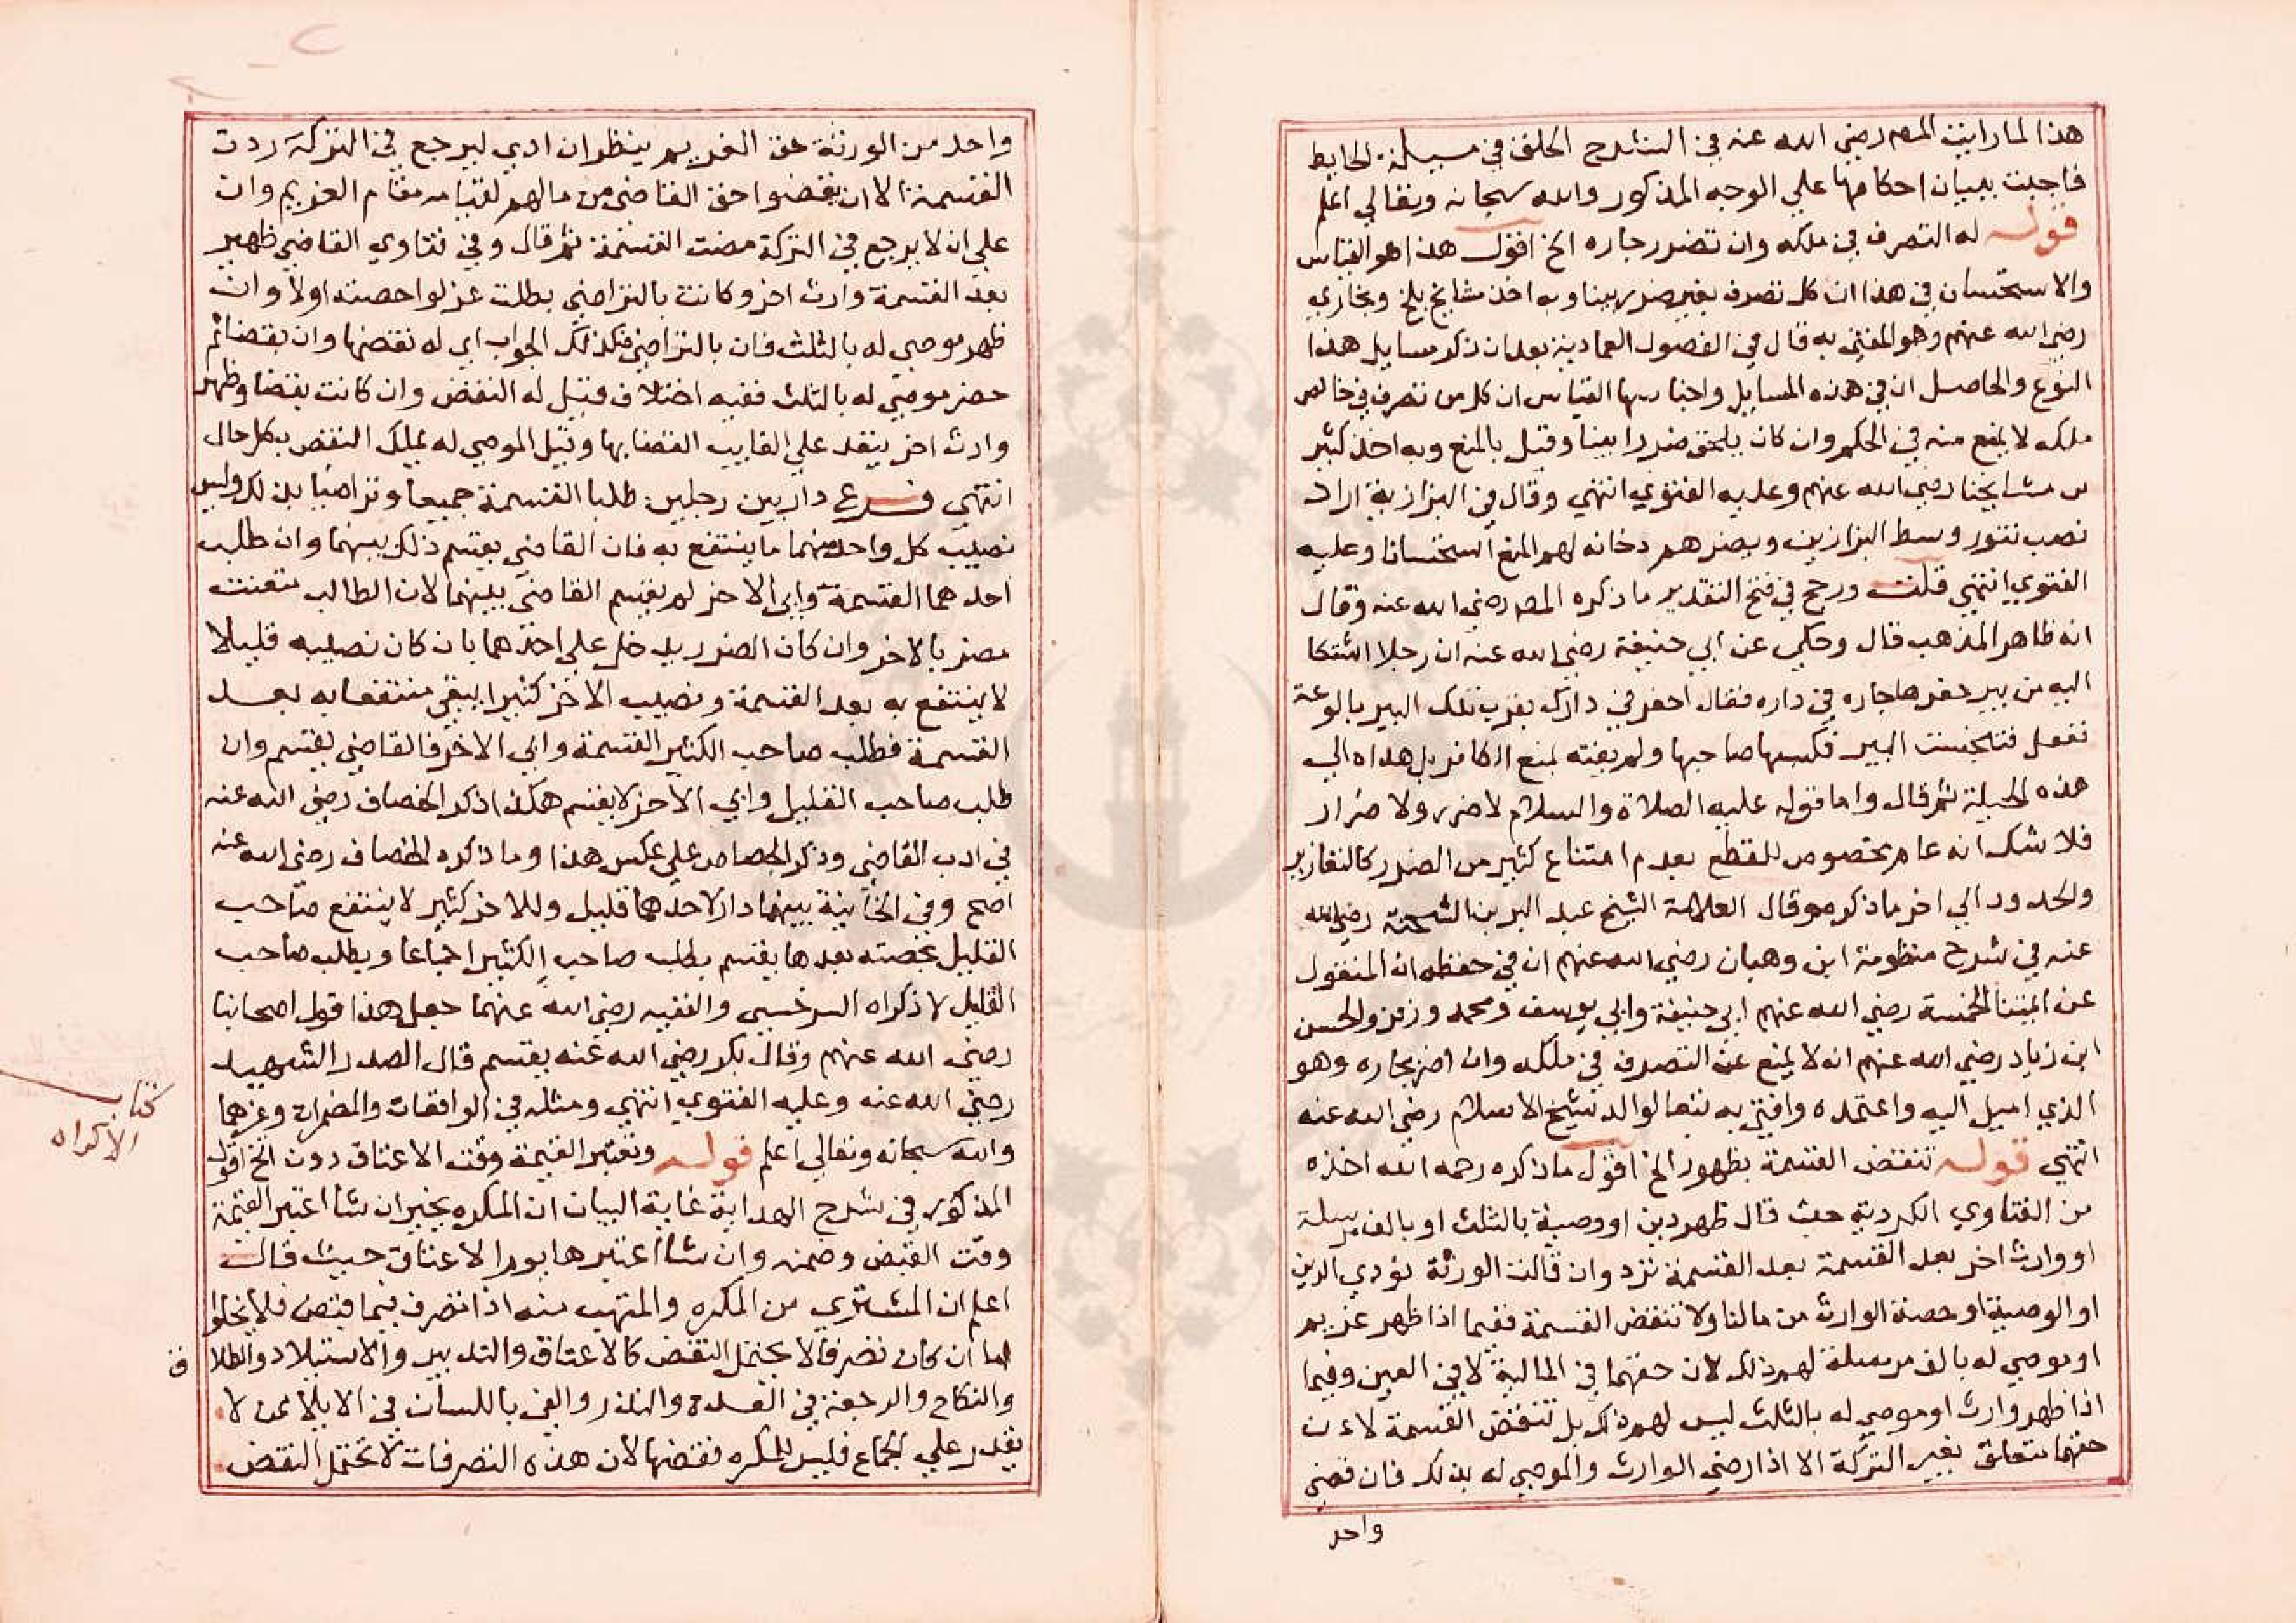 هذا لما رايت المص رضي الله عنه في الشرح الخلف في مسيلة الحايط
فاجبت ببيان احكامها علي الوجه المذكور والله سبحانه وتعالي اعلم
قوله له التصرف في ملكه وان تضرر جاره الخ اقول هذا هو القياس
والاستحسان في هذا ان كل تصرف بغير ضرر بينا وبه اخذ مشايخ بلخ وبخاري
رضي الله عنهم وهو المفتي به قال في الفصول العمادية بعد ان ذكر مسايل هذا
النوع والحاصل ان في هذه المسايل واجناسها القياس ان كل من تصرف في خالص
ملكه لا يمنع منه في الحكم وان كان يلحق ضررا بينا وقيل بالمنع وبه اخذ كثير
من مشايخنا رضي الله عنهم وعليه الفتوي انتهي وقال في البزازية اراد
نصب تنور وسط البزازين ويضرهم دخانه لهم المنع استحسانا وعليه
الفتوي انتهي قلت ورجح في فتح القدير ما ذكره المص رضي الله عنه وقال
انه ظاهر المذهب قال وحكي عن ابي حنيفة رضي الله عنه ان رجلا اشتكا
اليه من بير حفرها جاره في داره فقال احفر في دارك بقرب تلك البير بالوعة
ففعل فتنجست البير فكبسها صاحبها ولم يفته بمنع الكافر بل هداه الي
هذه الحيلة ثم قال واما قوله عليه الصلاة والسلام لا ضرر ولا ضرار
فلا شك انه عام مخصوص للقطع بعدم امتناع كثير من الضرر كالتعازير
والحدود الي اخر ما ذكره وقال العلامة الشيخ عبد البر بن الشحنة رضي الله
عنه في شرح منظومة ابن وهبان رضي الله عنهم ان في حفظه ان المنقول
عن ايمتنا الخمسة رضي الله عنهم ابي حنيفة وابي يوسف ومحمد وزفر والحسن
ابن زياد رضي الله عنهم انه لا يمنع عن التصرف في ملكه وان اضر بجاره وهو
الذي اميل اليه واعتمده وافتي به تبعا لوالد شيخ الاسلام رضي الله عنه
انتهي قوله تنقض القسمة بظهور الخ اقول ما ذكره رحمه الله اخذه
من الفتاوي الكردية حيث قال ظهر دين او وصية بالثلث او بالف مرسلة
او وارث اخر بعد القسمة بعد القسمة ترد وان قالت الورثة نودي الدين
او الوصية او حصة الوارث من مالنا ولا تنقض القسمة ففيما اذا ظهر غريم
او موصي له بالف مرسلة لهم ذلك لان حقهما في المالية لا في العين وفيما
اذا ظهر وارث او موصي له بالثلث ليس لهم ذلك بل تنقض القسمة لان
حقهما متعلق بغير التركة الا اذا رضي الوارث والموصي له بذلك فان قضي
واحد
واحد من الورثة حق الغريم ينظر ان ادي ليرجع في التركة ردت
القسمة الا ان يقضوا حق القاضي من مالهم لقيامه مقام الغريم وان
علي ان لا يرجع في التركة مضت القسمة ثم قال وفي فتاوي القاضي ظهير
بعد القسمة وارث اخر وكانت بالتراضي بطلت عزلوا حصته اولا وان
ظهر موصي له بالثلث فان بالتراضي فكذلك الجواب اي له نقضها وان بقضا ثم
حضر موصي له بالثلث ففيه اختلاف قيل له النقض وان كانت بقضا وظهر
وارث اخر ينفذ علي الغايب القضا بها وقيل الموصي له يملك النقض بكل حال
انتهي فرع دار بين رجلين طلبا القسمة جميعا وتراضيا بذلك وليس
نصيب كل واحد منهما ما ينتفع به فان القاضي يقسم ذلك بينهما وان طلب
احدهما القسمة وابي الاخر لم يقسم القاضي بينهما لان الطالب متعنت
مضر بالاخر وان كان الضرر يدخل علي احدهما بان كان نصيبه قليلا
لا ينتفع به بعد القسمة ونصيب الاخر كثيرا يبقي منتفعا به بعد
القسمة فطلب صاحب الكثير القسمة وابي الاخر فالقاضي يقسم وان
طلب صاحب القليل وابي الاخر لا يقسم هكذا ذكر الخصاف رضي الله عنه
في ادب القاضي وذكر الجصاص علي عكس هذا وما ذكره الخصاف رضي الله عنه
اصح وفي الخانية بينهما دار لاحدهما قليل وللاخر كثير لا ينتفع صاحب
القليل بحصته بعدها يقسم بطلب صاحب الكثير اجماعا وبطلب صاحب
القليل لا ذكراه السرخسي والفقيه رضي الله عنهما جعل هذا قول اصحابنا
رضي الله عنهم وقال بكر رضي الله عنه يقسم قال الصدر الشهيد
رضي الله عنه وعليه الفتوي انتهي ومثله في الواقعات والمضمرات وغيرهما
والله سبحانه وتعالي اعلم قوله وتعتبر القيمة وقت الاعتاق دون الخ اقول
المذكور في شرح الهداية غاية البيان ان المكره يخير ان شا اعتبر القيمة
وقت القبض وضمنه وان شا اعتبرها يوم الاعتاق حيث قال
اعلم ان المشتري من المكره والمتهب منه اذا تصرف فيما قبض فلا يخلوا
اما ان كان تصرفا لا يحتمل النقض كالاعتاق والتدبير والاستيلاد والطلا
ق
والنكاح والرجعة في العدة والنذر والفي باللسان في الايلا ممن لا
يقدر علي الجماع فليس للمكره نقضها لان هذه التصرفات لا تحتمل النقض
كتاب
الاكراه